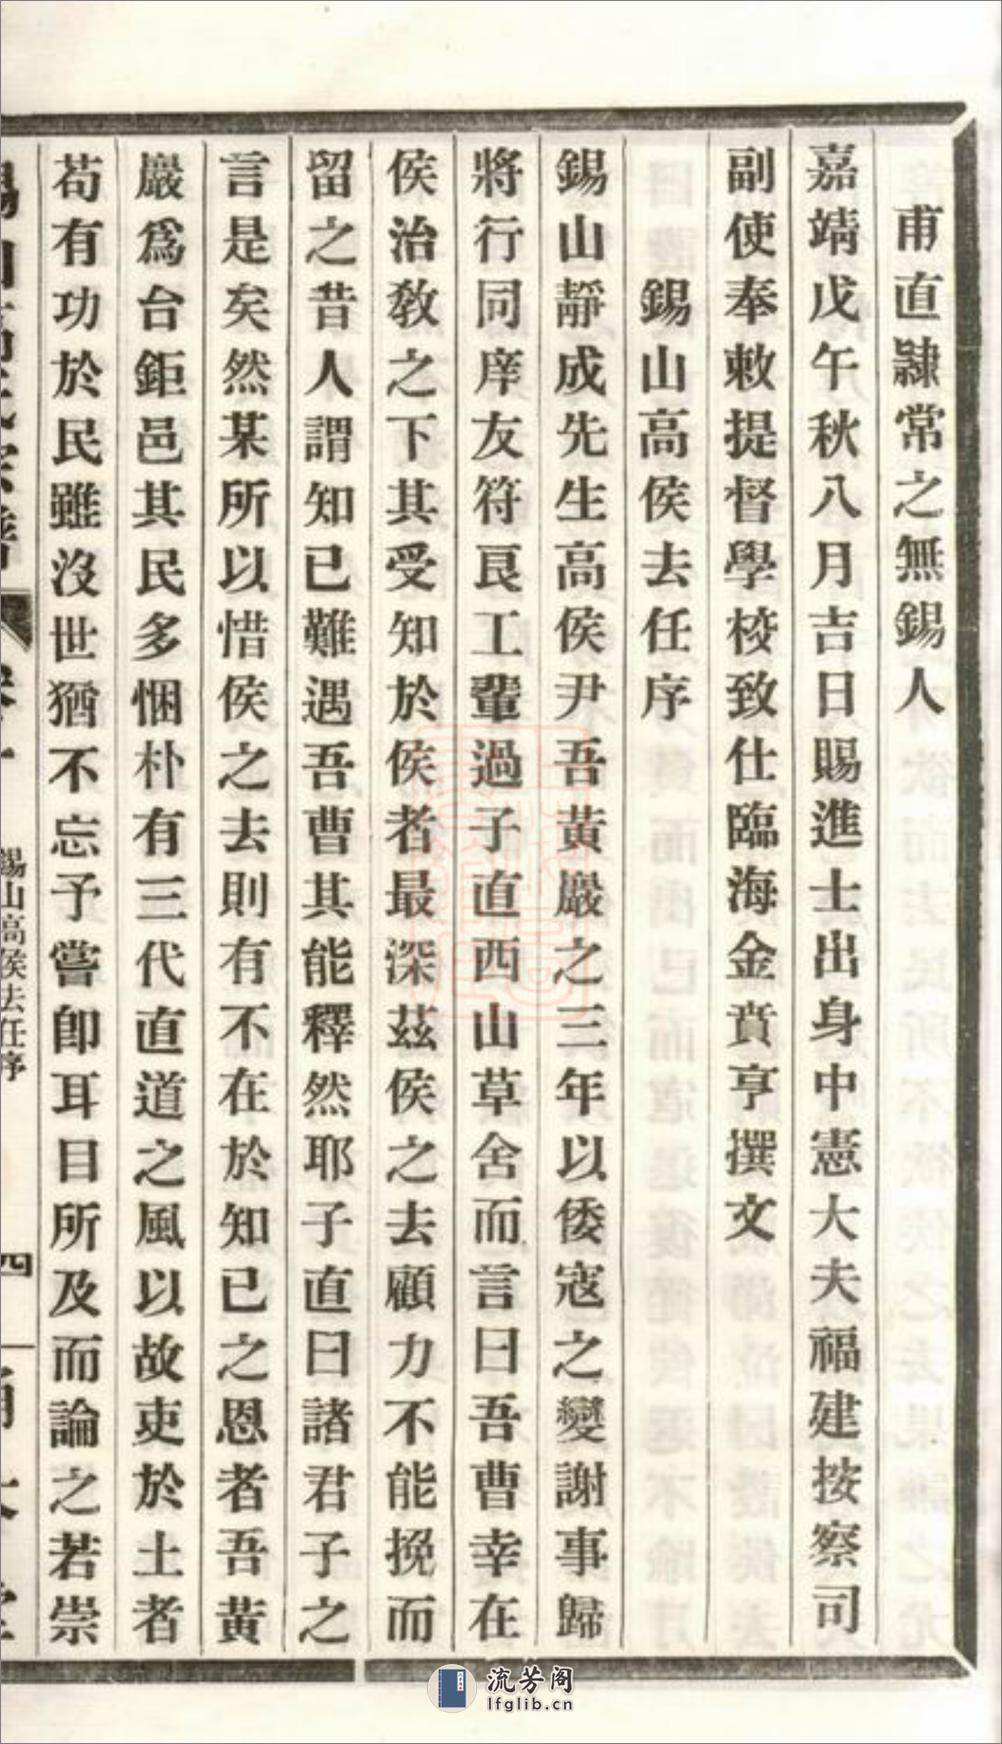 甫直隸常之無錫人
嘉靖戊午秋八月吉日賜進士出身中憲大夫福建按察司
副使奉敕提督學校致仕臨海金賁亨撰文
錫山高侯去任序
錫山靜成先生高侯尹吾黃巖之三年以倭寇之變謝事歸
將行同庠友符良工輩過子直西山草舍而言曰吾曹幸在
侯治教之下其受知於侯者最深茲侯之去顧力不能挽而
留之昔人謂知已難遇吾曹其能釋然耶子直曰諸君子之
言是矣然某所以惜侯之去則有不在於知已之恩者吾黃
巖爲台鉅邑其民多悃朴有三代直道之風以故吏於土者
苟有功於民雖沒世猶不忘予嘗卽耳目所及而論之若崇
錫山高侯去任序
四
流芳阁
lfglib.cn